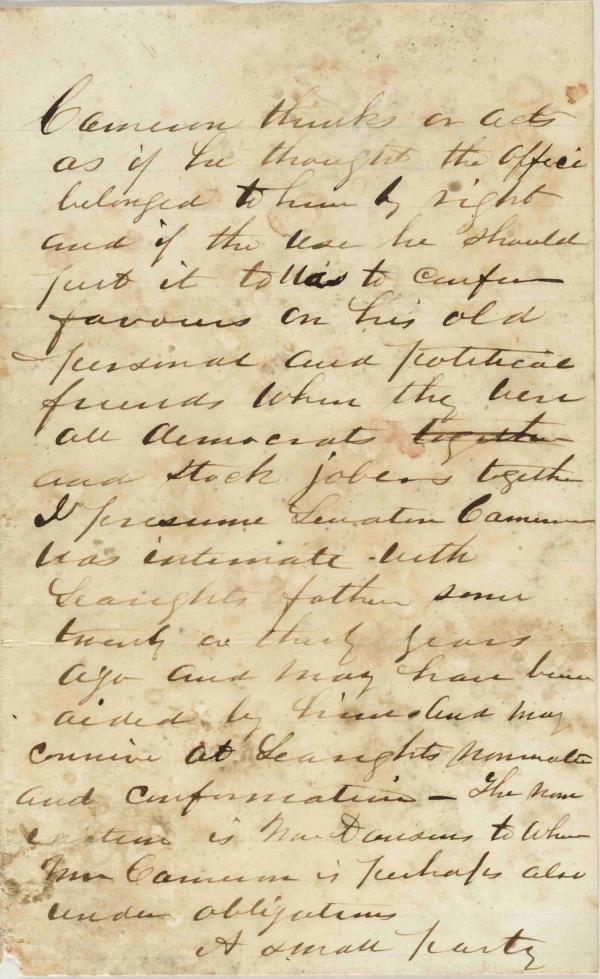 Cameron thinks or acts
as if he thought the office
belonged to him by right
and if the use he should
put it to was to confer
favours on his old
personal and political
friends when they were
all democrats together
and stock jobers together
I presume Senator Cameron
was intimate with
Searights father some
twenty or thirty years
ago and may have been
aided by him and may
connive at Searights
and conformation – The nom
is Mr to whom
Mr Cameron is perhaps also
under obligations
A small party